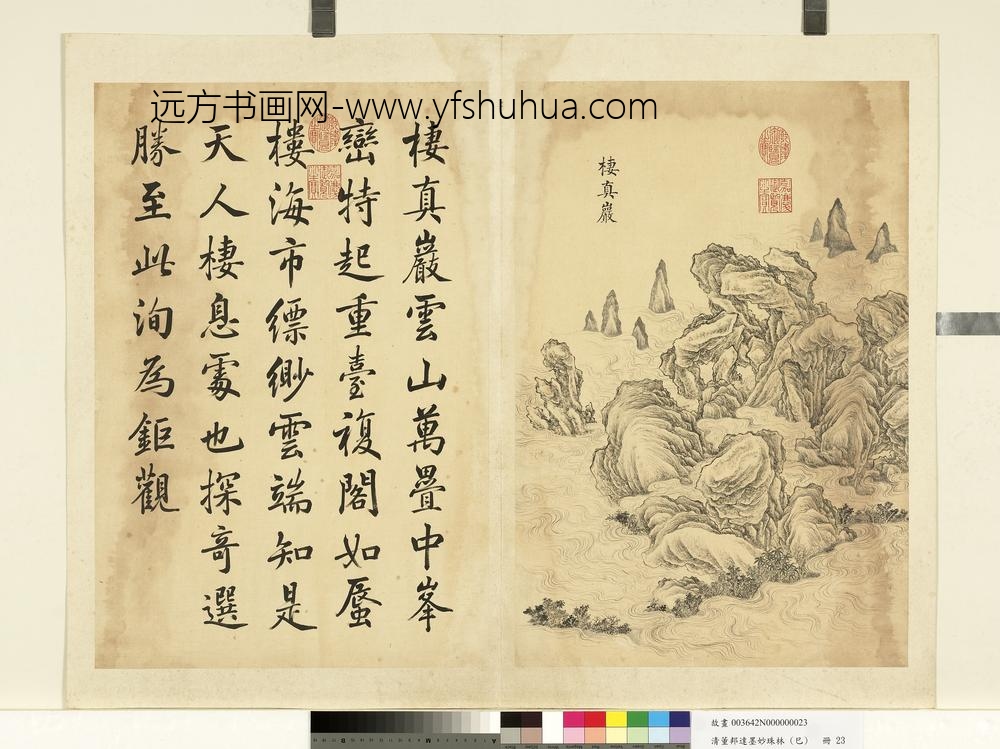 远方书画网-www.yfshuhua.com
棲真巖
棲真巖雲山萬疊中峯
巒特起重臺複閣如蜃
樓海市縹緲雲端知是
天人棲息處也探竒選
勝至此洵為鉅觀
故畫 003642N000000023
清董邦達墨妙珠林（巳） 冊 23